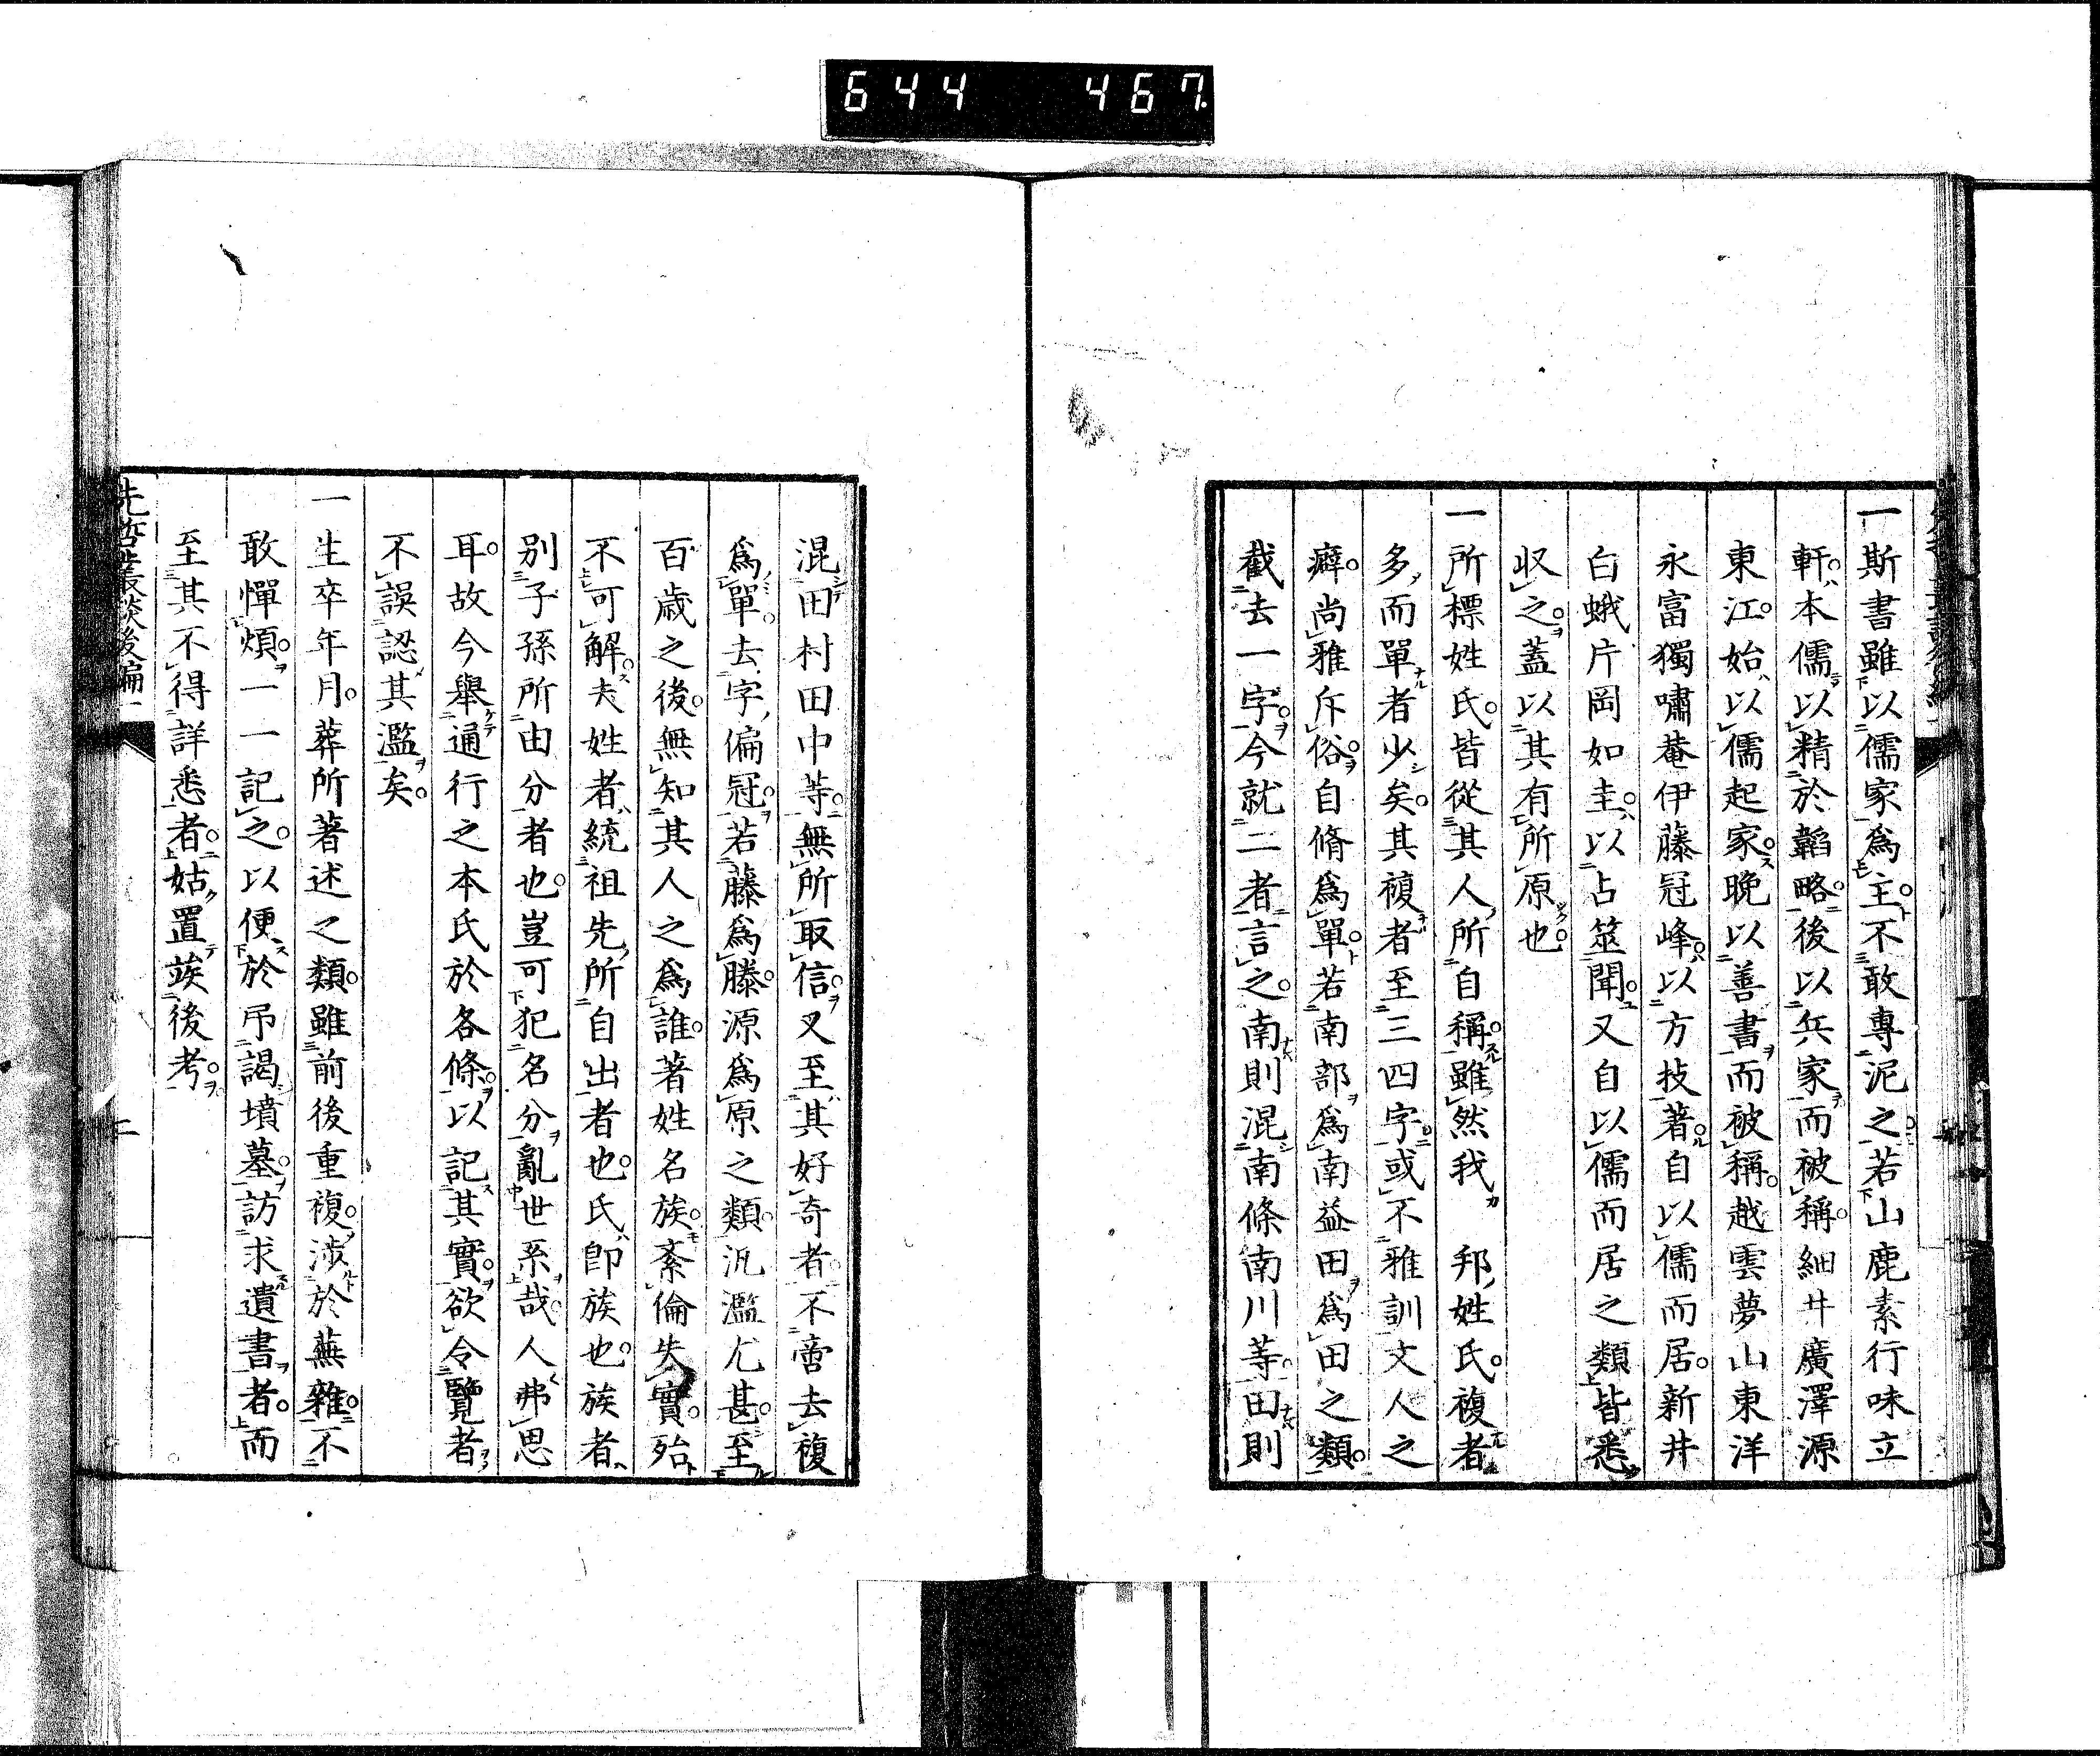 644 467
一斯書雖以儒家爲主不敢專泥之若山鹿素行味立
軒本儒以精於韜略後以兵家而被稱細井廣澤源
東江始以儒起家晩以善書而被稱越雲夢山東洋
永富獨嘯菴伊藤冠峰以方技著自以儒而居新井
白蛾片岡如圭以占筮聞又自以儒而居之類皆悉
収之蓋以其有所原也
一所標姓氏皆從其人所自稱雖然我 邦姓氏複者
多而單者少矣其複者至三四字或不雅訓文人之
癖尚雅斥俗自脩爲單若南部爲南益田爲田之類
截去一字今就二者言之南則混南條南川等田則
混田村田中等無所取信又至其好奇者不啻去複
爲單去字偏冠若藤爲滕源爲原之類汎濫尤甚至
百歳之後無知其人之爲誰著姓名族紊倫失實殆
不可解夫姓者統祖先所自出者也氏即族也族者
別子孫所由分者也豈可犯名分亂世系哉人弗思
耳故今舉通行之本氏於各條以記其實欲令覽者
不誤認其濫矣
一生卒年月葬所著述之類雖前後重複涉於蕪雜不
敢憚煩一一記之以便於吊謁墳墓訪求遺書者而
至其不得詳悉者姑置竢後考
先哲叢談後編一
二